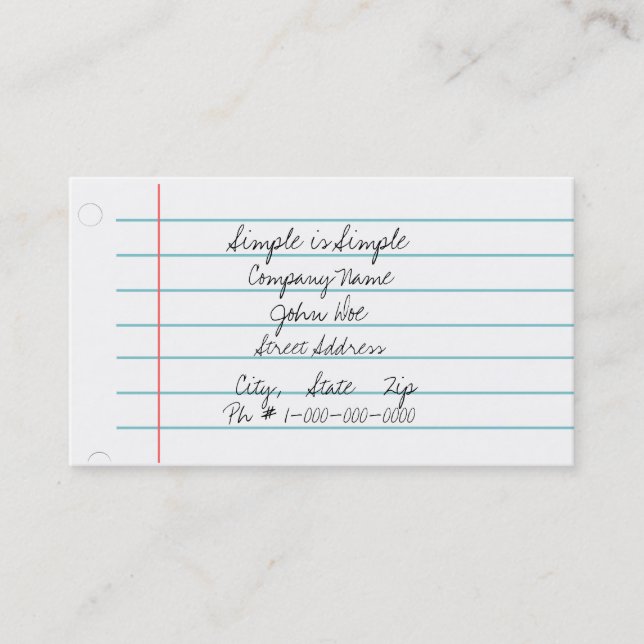 Simple is Simple
Company Name
John Doe
Street Address
City, State Zip
Ph # 1-000-000-0000